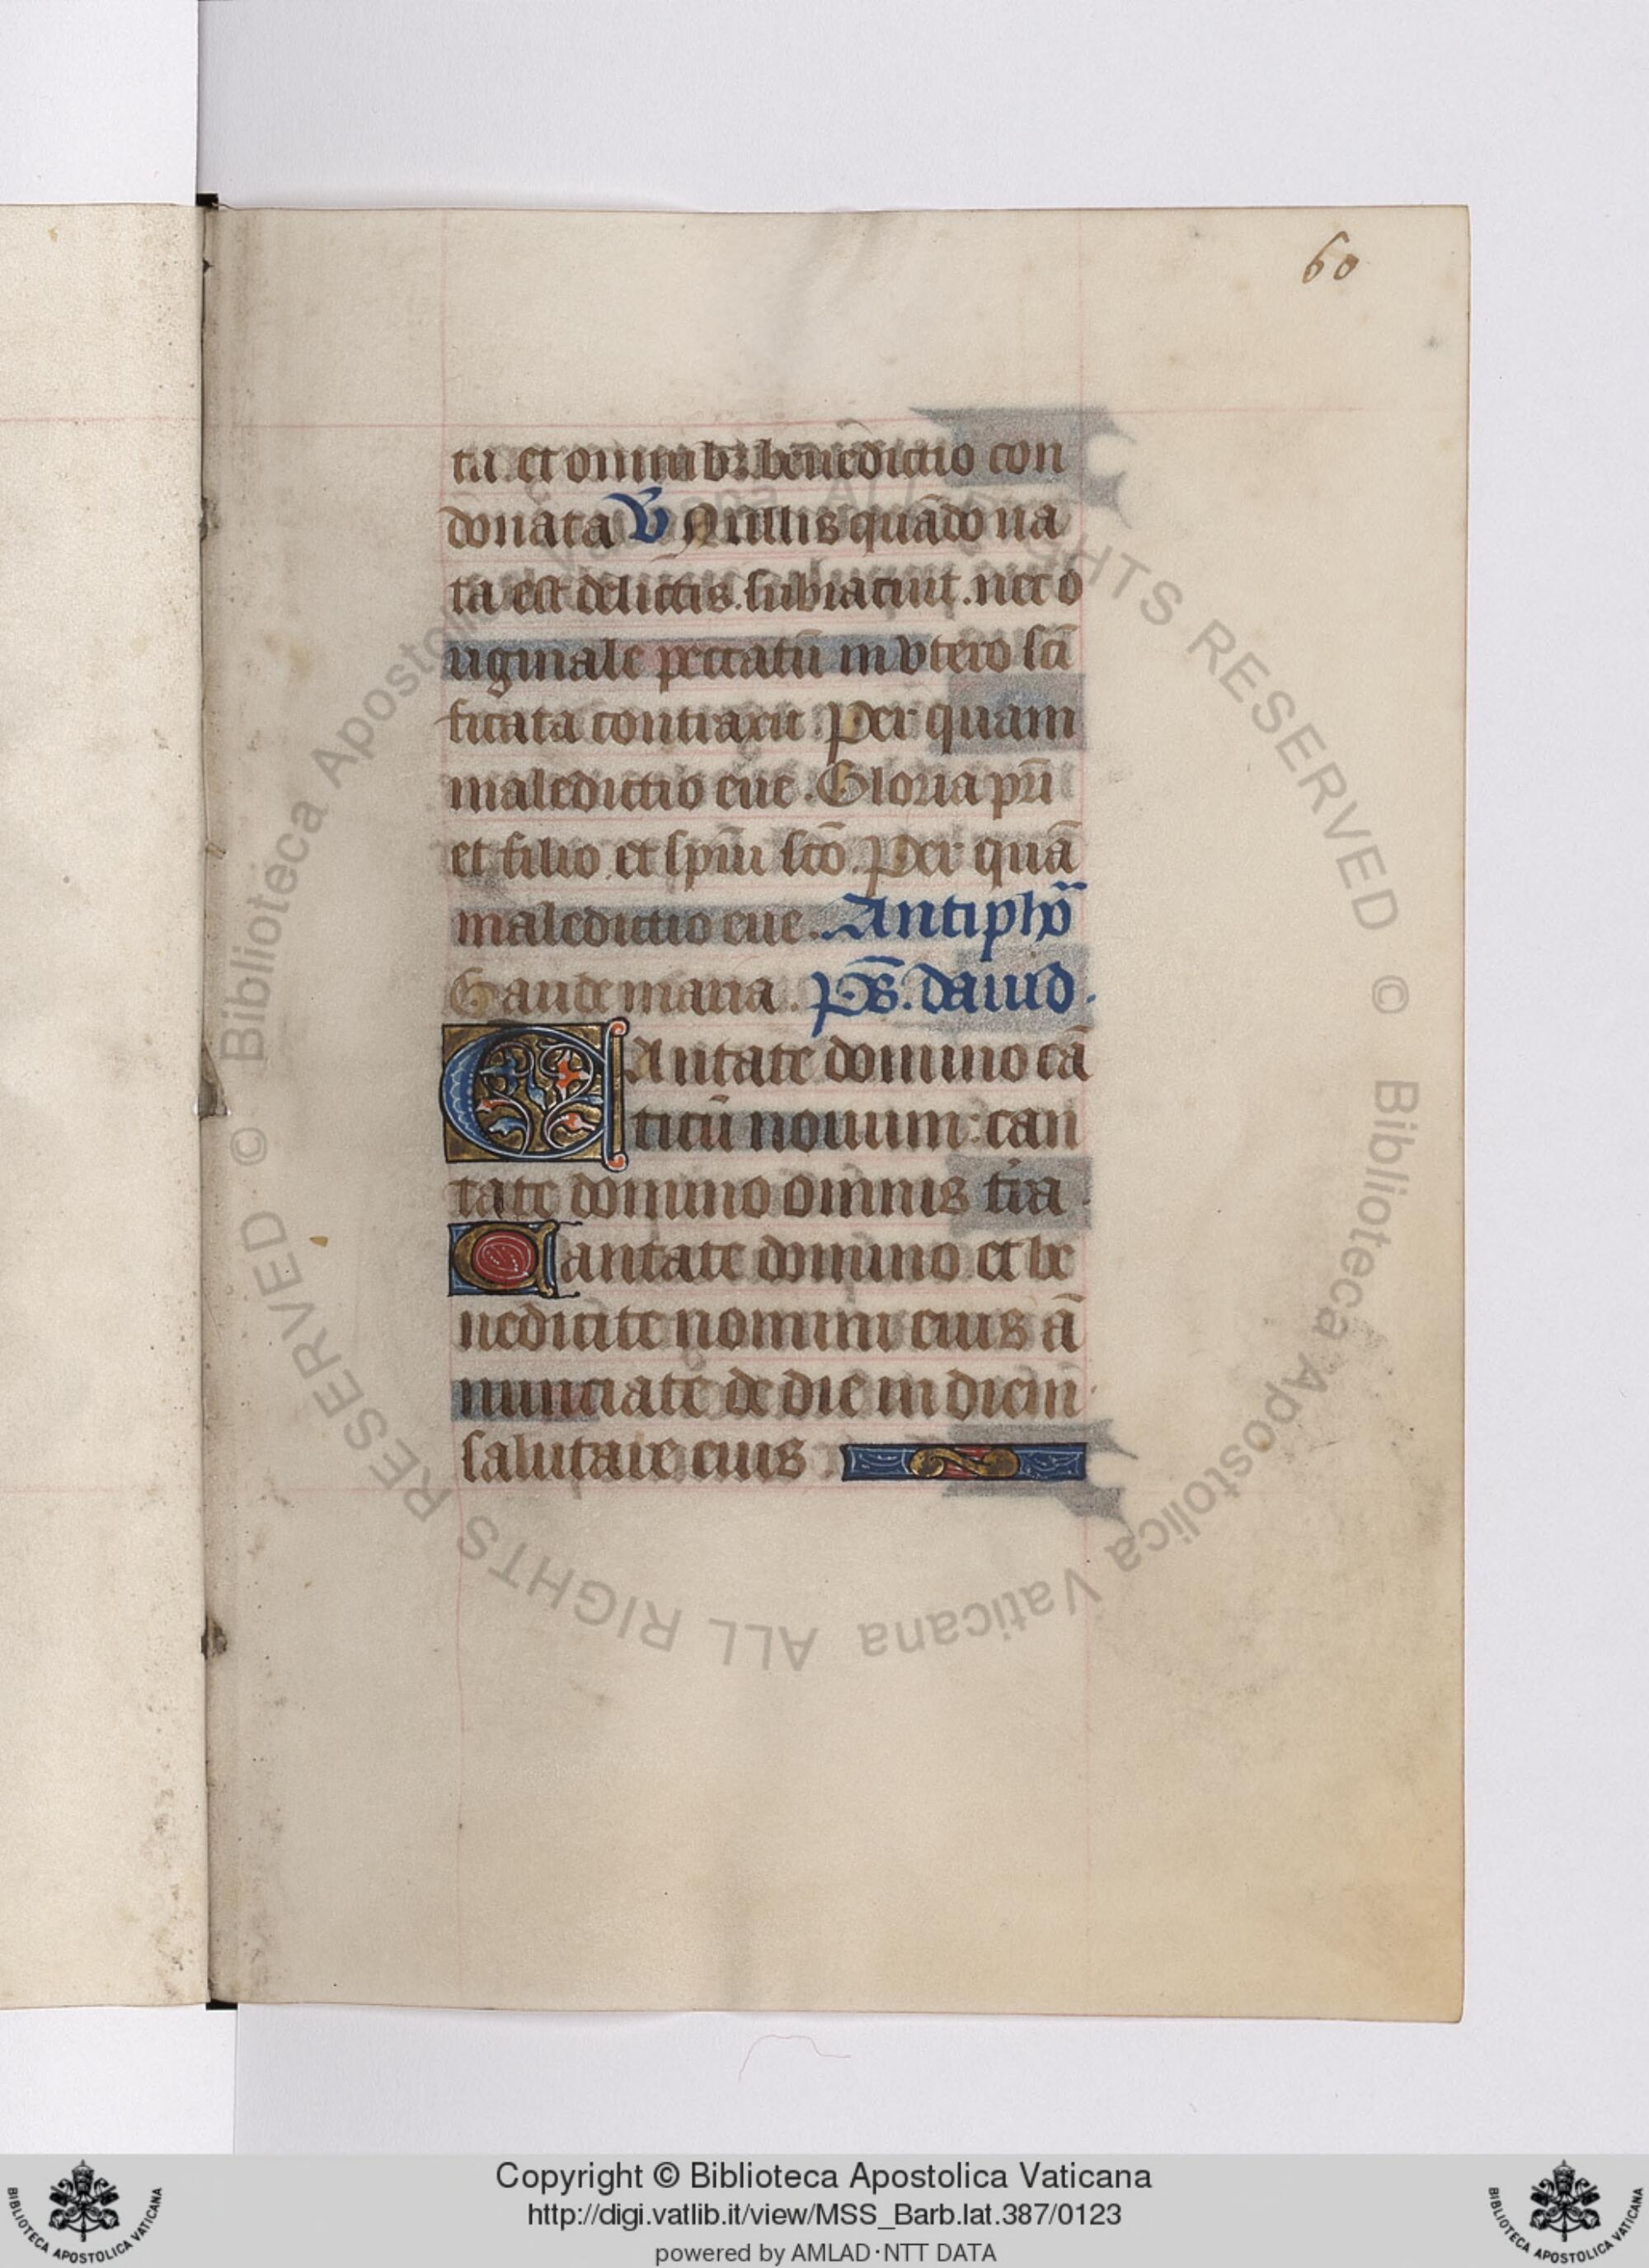 60
ta. et omnibꝫ benedictio con
donata ℣ Nullis quãdo na
ta est delictis subiacuit. nec o
riginale peccatũ in vtero scĩ
ficata contraxit. Per quam
maledictio eue. Gloria pr̃i
et filio et spũi scõ. Per quã
maledictio eue. Antiphõ
Gaude maria. p̃s. dauid.
CAntate domino cã
ticũ nouum: can
tate domino omnis tr̃a.
Cantate domino et be
nedicite nomini eius ã
nunciate de die in diem
salutare eius.
© Biblioteca Apostolica Vaticana ALL RIGHTS RESERVED © Biblioteca Apostolica Vaticana ALL RIGHTS RESERVED
Copyright © Biblioteca Apostolica Vaticana
http://digi.vatlib.it/view/MSS_Barb.lat.387/0123
powered by AMLAD·NTT DATA
BIBLIOTECA APOSTOLICA VATICANA
BIBLIOTECA APOSTOLICA VATICANA